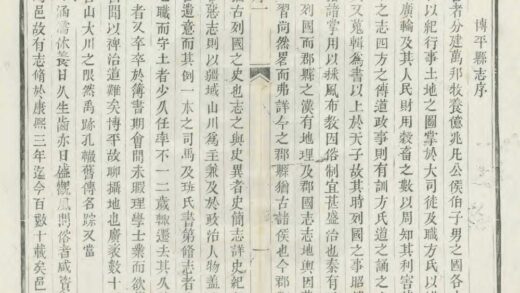 博平縣志序
者分建萬邦牧養億兆凡公侯伯子男之國各
以紀行事土地之圖掌於大司徒及職方氏以
廣輪及其人民財用穀畜之數以周知其利害
之志四方之傳道政事則有訓方氏道之誦之
又蒐輯爲書以上於天子故其時列國之事昭
諸掌用以採風布教因俗制宜甚盛治也秦有
列國而郡縣之漢有地理及郡國志志地輿因
習尚然畧而弗詳今之郡縣猶古諸侯也今郡
序一
一
猶古列國之史也志之與史異者史簡志詳史紀
惡志則以疆域山川爲主兼及於政治人物蓋
遺意而其例一本之司馬及班氏書第脩志者
職而守土者少久任率不一二歲輒遷去其久
者又卒卒於簿書期會間未暇理學士業而欲
聞以裨治道難矣博平故聊攝地也廣袤數十
山大川之限然禹跡孔轍舊傳名踪又當
涵濡休養日久生齒亦日盛觀風問俗者咸資
邑故有志脩於康熙三年迄今百數十載矣邑